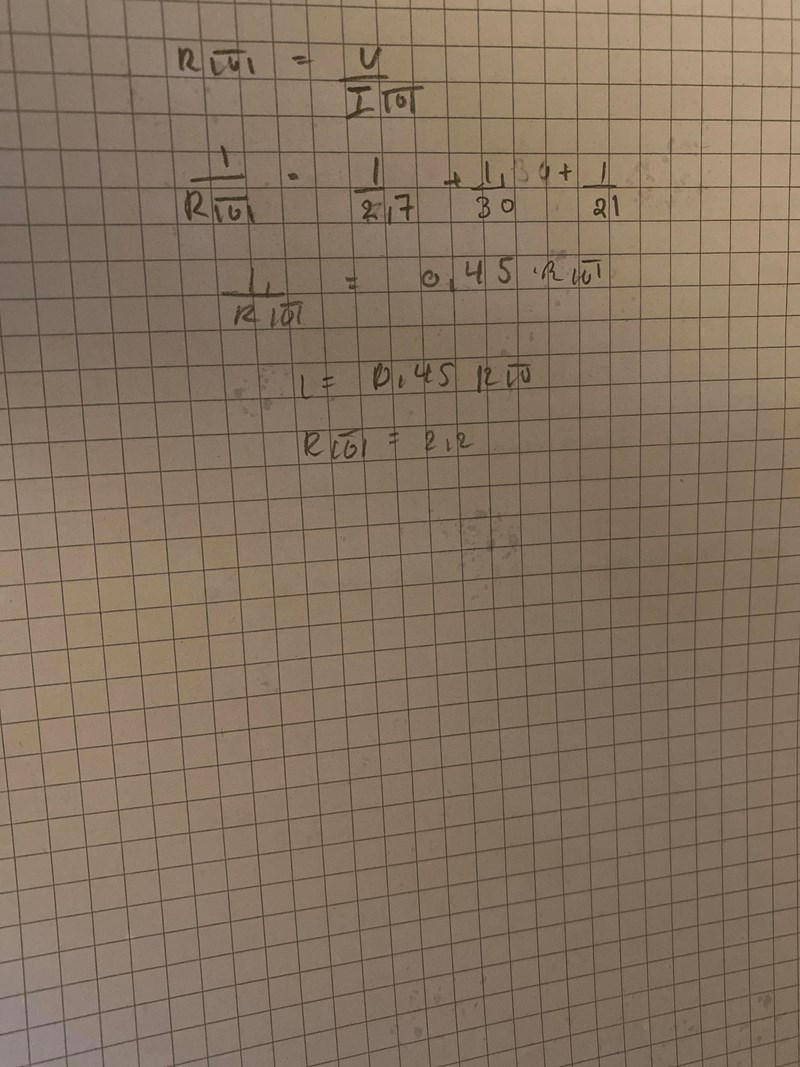 R|tot| = U / I tot
1 / R tot = 1 / 2,7 + 1 / 30 + 1 / 21
1 / R tot = 0,45 · R tot
1 = 0,45 R tot
R tot = 2,2